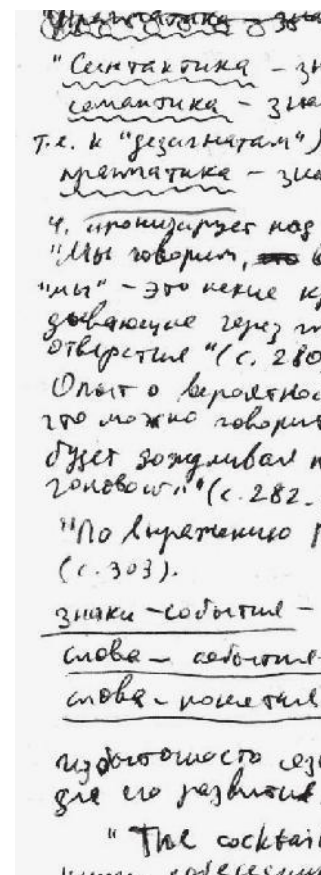 "Синтактика – зн
семантика – зна
т.е. к "десигнатам")
прагматика – зна
Ч. иронизирует над
"Мы говорим, в
"мы" – это некие
через
отверстия" (с. 280
Опыт о вероятнос
что можно говорит
будет дождливая п
(с. 282.
"По выражению
(с. 303).
знаки – события –
слова – события –
слова – понятия
избыточность язы
для его развития
"The cocktail